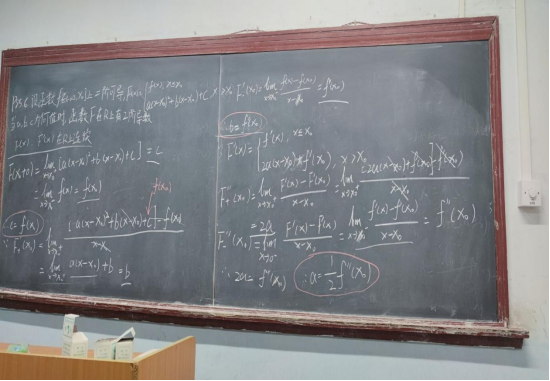 P356 设函数f在(-∞,x₀]上二阶可导, F(x)={f(x), x≤x₀
a(x-x₀)²+b(x-x₀)+c x>x₀
当a,b,c为何值时, 函数F在R上有2阶导数
F(x), F'(x)在R上连续
F(x₀+0)=lim [a(x-x₀)²+b(x-x₀)+c]=c
=lim f(x)=f(x₀)
f(x₀)
∴ c=f(x₀)
F₊'(x₀)=lim [a(x-x₀)²+b(x-x₀)+c]-f(x₀) / x-x₀
=lim a(x-x₀)+b=b
F₋'(x₀)=lim f(x)-f(x₀) / x-x₀ =f'(x₀)
∴ b=f'(x₀)
F'(x)={f'(x), x≤x₀
2a(x-x₀)+f'(x₀), x>x₀
F₊''(x₀)=lim F'(x)-F'(x₀) / x-x₀ =lim [2a(x-x₀)+f'(x₀)]-f'(x₀) / x-x₀
=2a
F₋''(x₀)=lim F'(x)-F'(x₀) / x-x₀ =lim f'(x)-f'(x₀) / x-x₀ =f''(x₀)
∴ 2a=f''(x₀) ∴ a=1/2 f''(x₀)